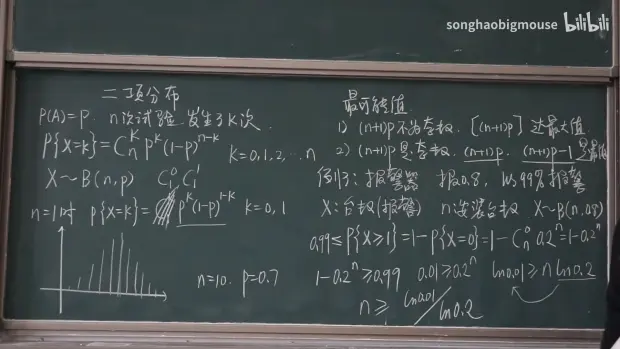 songhaobigmouse bilibili
二项分布
P(A)=P. n次试验 发生了K次.
P{X=k}=C_n^k p^k(1-p)^{n-k} k=0,1,2,…n
X~B(n,p) C_1^0 C_1^1
n=1时 P{X=k}= p^k(1-p)^{1-k} k=0,1
n=10. p=0.7
最可能值
1) (n+1)p不为整数. [(n+1)p] 达最大值.
2) (n+1)p是整数. (n+1)p. (n+1)p-1 是最
例13: 报警器 报0.8, 以99%报警
X:台数(报警) n安装台数 X~B(n,0.8)
0.99≤P{X≥1}=1-P{X=0}=1-C_n^0 0.2^n=1-0.2^n
1-0.2^n≥0.99 0.01≥0.2^n ln0.01≥nln0.2
n≥ ln0.01/ln0.2